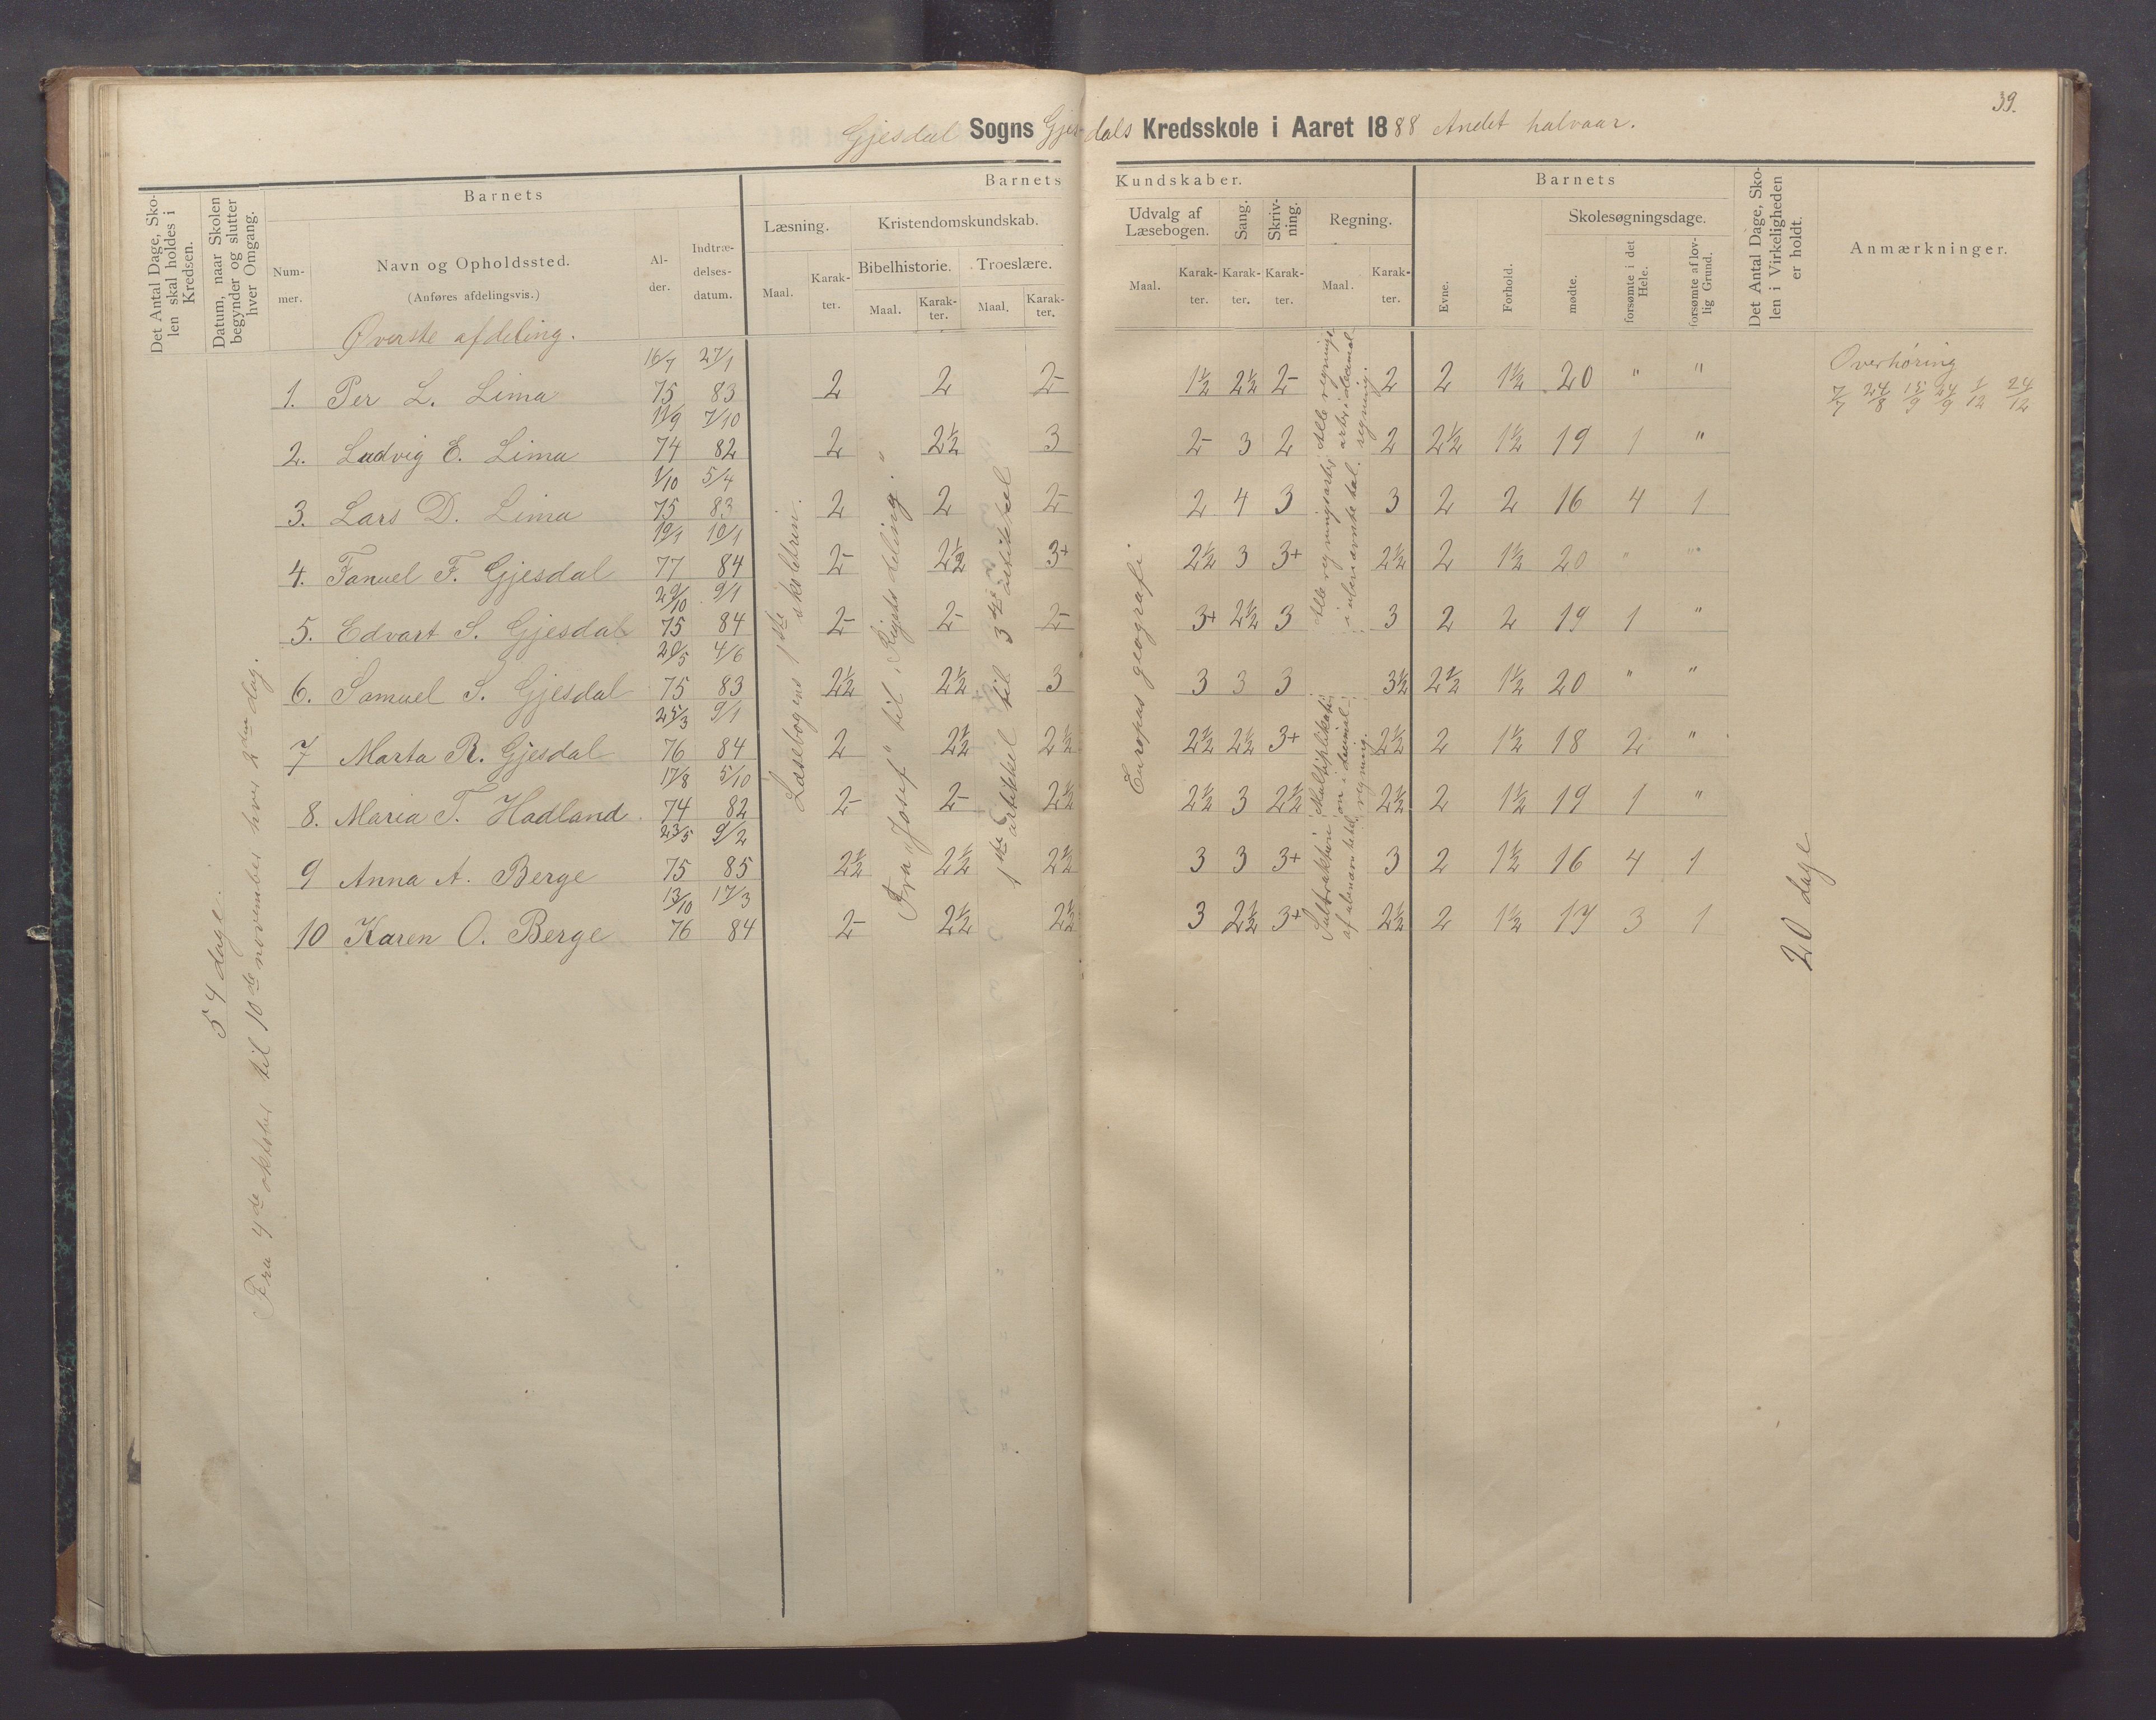 39.
Gjesdal Sogns Gjesdals Kredsskole i Aaret 1888 Andet halvaar.
Det Antal Dage, Skolen skal holdes i Kredsen.
Datum, naar Skolen begynder og slutter hver Omgang.
Barnets
Nummer.
Navn og Opholdssted.
(Anføres afdelingsvis.)
Alder.
Indtrædelsesdatum.
Barnets Kundskaber.
Læsning.
Maal. Karakter.
Kristendomskundskab.
Bibelhistorie. Troeslære.
Maal. Karakter. Maal. Karakter.
Udvalg af Læsebogen.
Maal. Karakter.
Sang.
Karakter.
Skrivning.
Karakter.
Regning.
Maal. Karakter.
Barnets
Evne.
Forhold.
Skolesøgningsdage.
mødte.
forsømte i det Hele.
forsømte af lovlig Grund.
Det Antal Dage, Skolen i Virkeligheden er holdt.
Anmærkninger.
Øverste afdeling.
Overhøring
7/7 24/8 15/9 24/9 1/12 24/12
1. Per L. Lima 16/7 75 27/1 83 2 2 2- 1½ 2½ 2- 2 2 1½ 20 " "
2. Ludvig E. Lima 11/9 74 7/10 82 2 2½ 3 2- 3 2 2 2½ 1½ 19 1 "
3. Lars D. Lima 1/10 75 5/4 83 2 2 2- 2 4 3 3 2 2 16 4 1
4. Fanuel F. Gjesdal 19/1 77 10/1 84 2- 2½ 3+ 2½ 3 3+ 2½ 2 1½ 20 " "
5. Edvart S. Gjesdal 29/10 75 9/1 84 2- 2- 2- 3+ 2½ 3 3 2 2 19 1 "
6. Samuel S. Gjesdal 20/5 75 4/6 83 2½ 2½ 3 3 3 3 3½ 2½ 1½ 20 " "
7 Marta R. Gjesdal 25/3 76 9/1 84 2 2½ 2½ 2½ 2½ 3+ 2½ 2 1½ 18 2 "
8. Maria T. Hadland 17/8 74 5/10 82 2- 2- 2½ 2½ 3 2½ 2½ 2 1½ 19 1 "
9 Anna A. Berge 23/5 75 9/2 85 2½ 2½ 2½ 3 3 3+ 3 2 1½ 16 4 1
10 Karen O. Berge 13/10 76 17/3 84 2- 2½ 2½ 3 2½ 3+ 2½ 2 1½ 17 3 1
54 dage.
Fra 4de oktober til 10de november hver 2den dag.
Læsebogens 1ste skoletrin.
Fra „Josef" til „Rigets deling."
1ste artikkel til 3die artikkel
Europas geografi
Alle regningsarter i ubenævnte tal.
Alle regningsarter i decimalregning.
Subtraktion af ubenævnte tal
Multiplikation i decimalregning.
20 dage